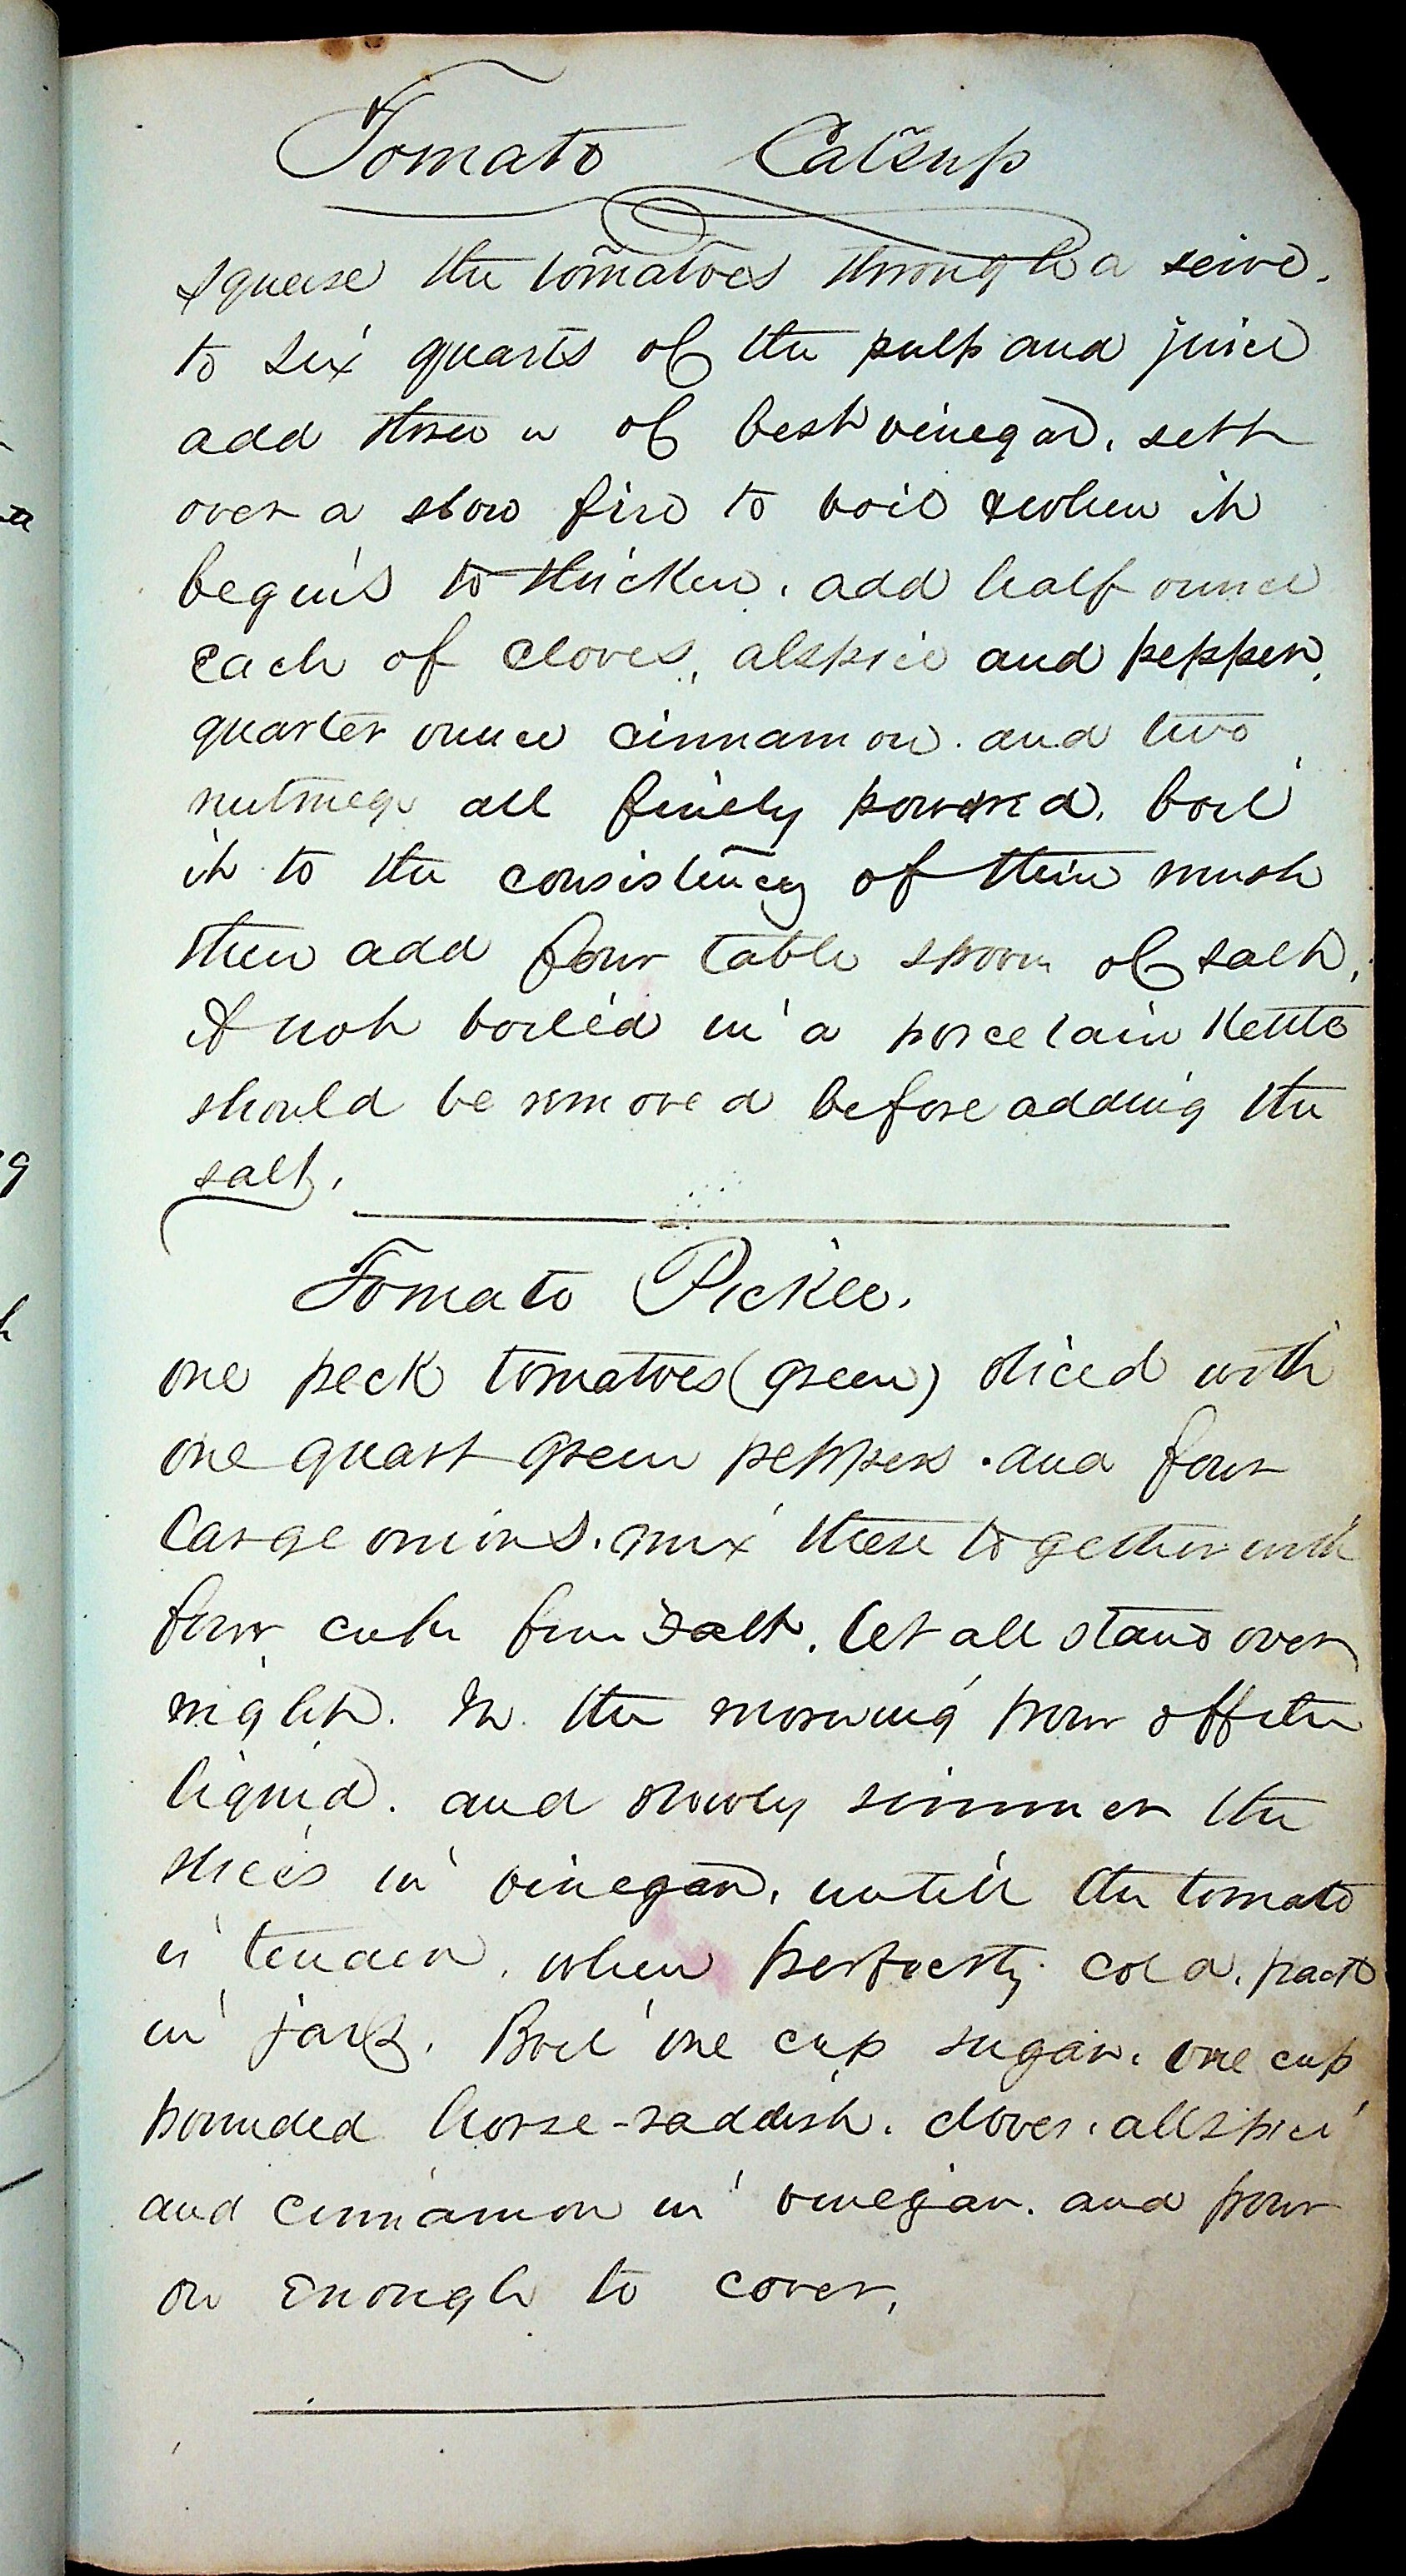 Tomato Catsup
squeese the tomatoes through a seive.
to six quarts of the pulp and juice
add three " of best vinegar, sett
over a slow fire to boil & when it
begins to thicken, add half ounce
each of cloves, alspice and pepper,
quarter ounce cinnamon. and two
nutmegs all finely powdred, boil
it to the consistency of thin mush
then add four table spoons of salt,
If not boiled in a porcelain kettle
should be removed before adding the
salt.
Tomato Pickle.
one peck tomatoes (green) sliced with
one quart green peppers. and four
large onions. mix these together with
four cups fine salt. let all stand over
night. In the morning pour off the
liquid. and slowly simmer the
slices in vinegar, untill the tomato
is tender, when perfectly cold, pack
in jars. Boil one cup sugar. one cup
pounded horse-raddish. cloves, allspice
and cinnamon in vinegar. and pour
on enough to cover.